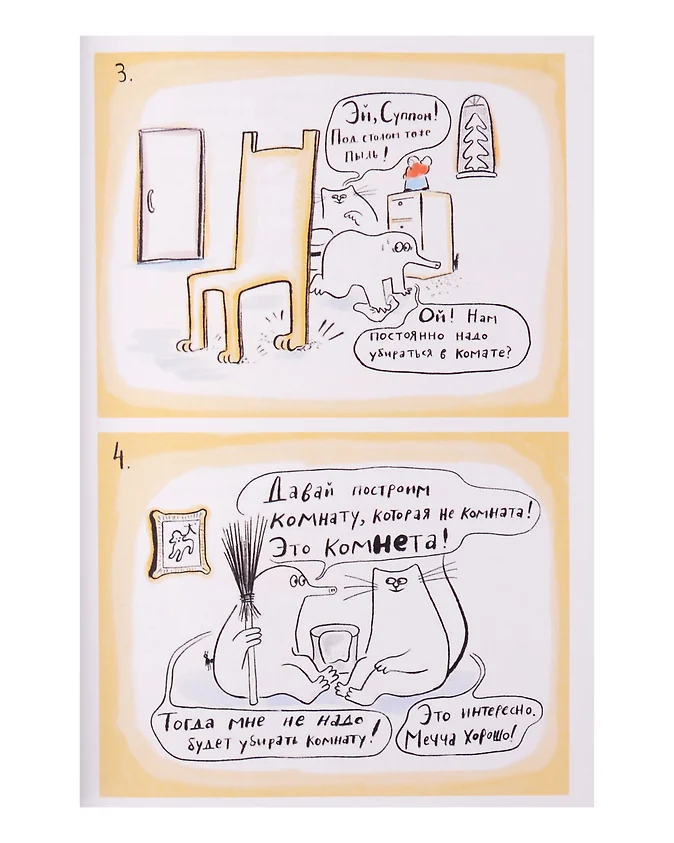 3.
Эй, Суппон!
Под столом тоже
пыль!
Ой! Нам
постоянно надо
убираться в комате?
4.
Давай построим
комнату, которая не комната!
Это комнета!
Тогда мне не надо
будет убирать комнату!
Это интересно.
Мечча хорошо!